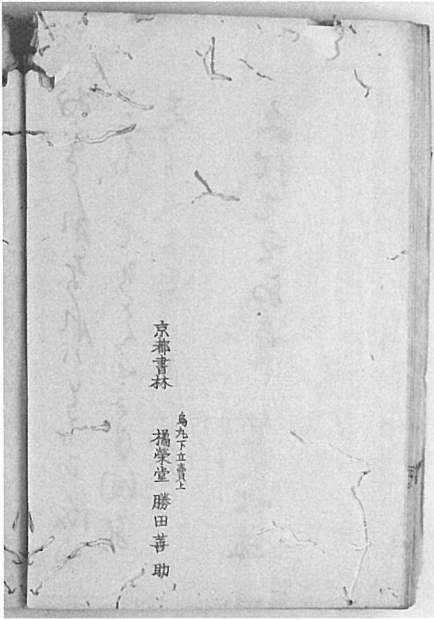 京都書林
烏丸下立賣上
橘榮堂 勝田善助